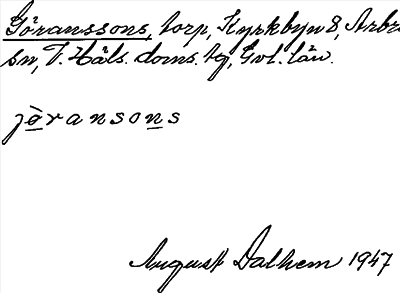 Göranssons, torp, Kyrkbyn 8, Arbrå
sn, V. Häls. doms. tg, Gvl. län.
jòransons
August Dalhem 1947